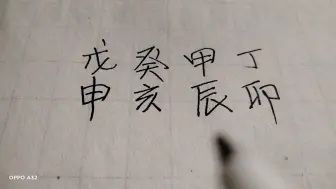 戊癸甲丁
申亥辰卯
OPPO A32